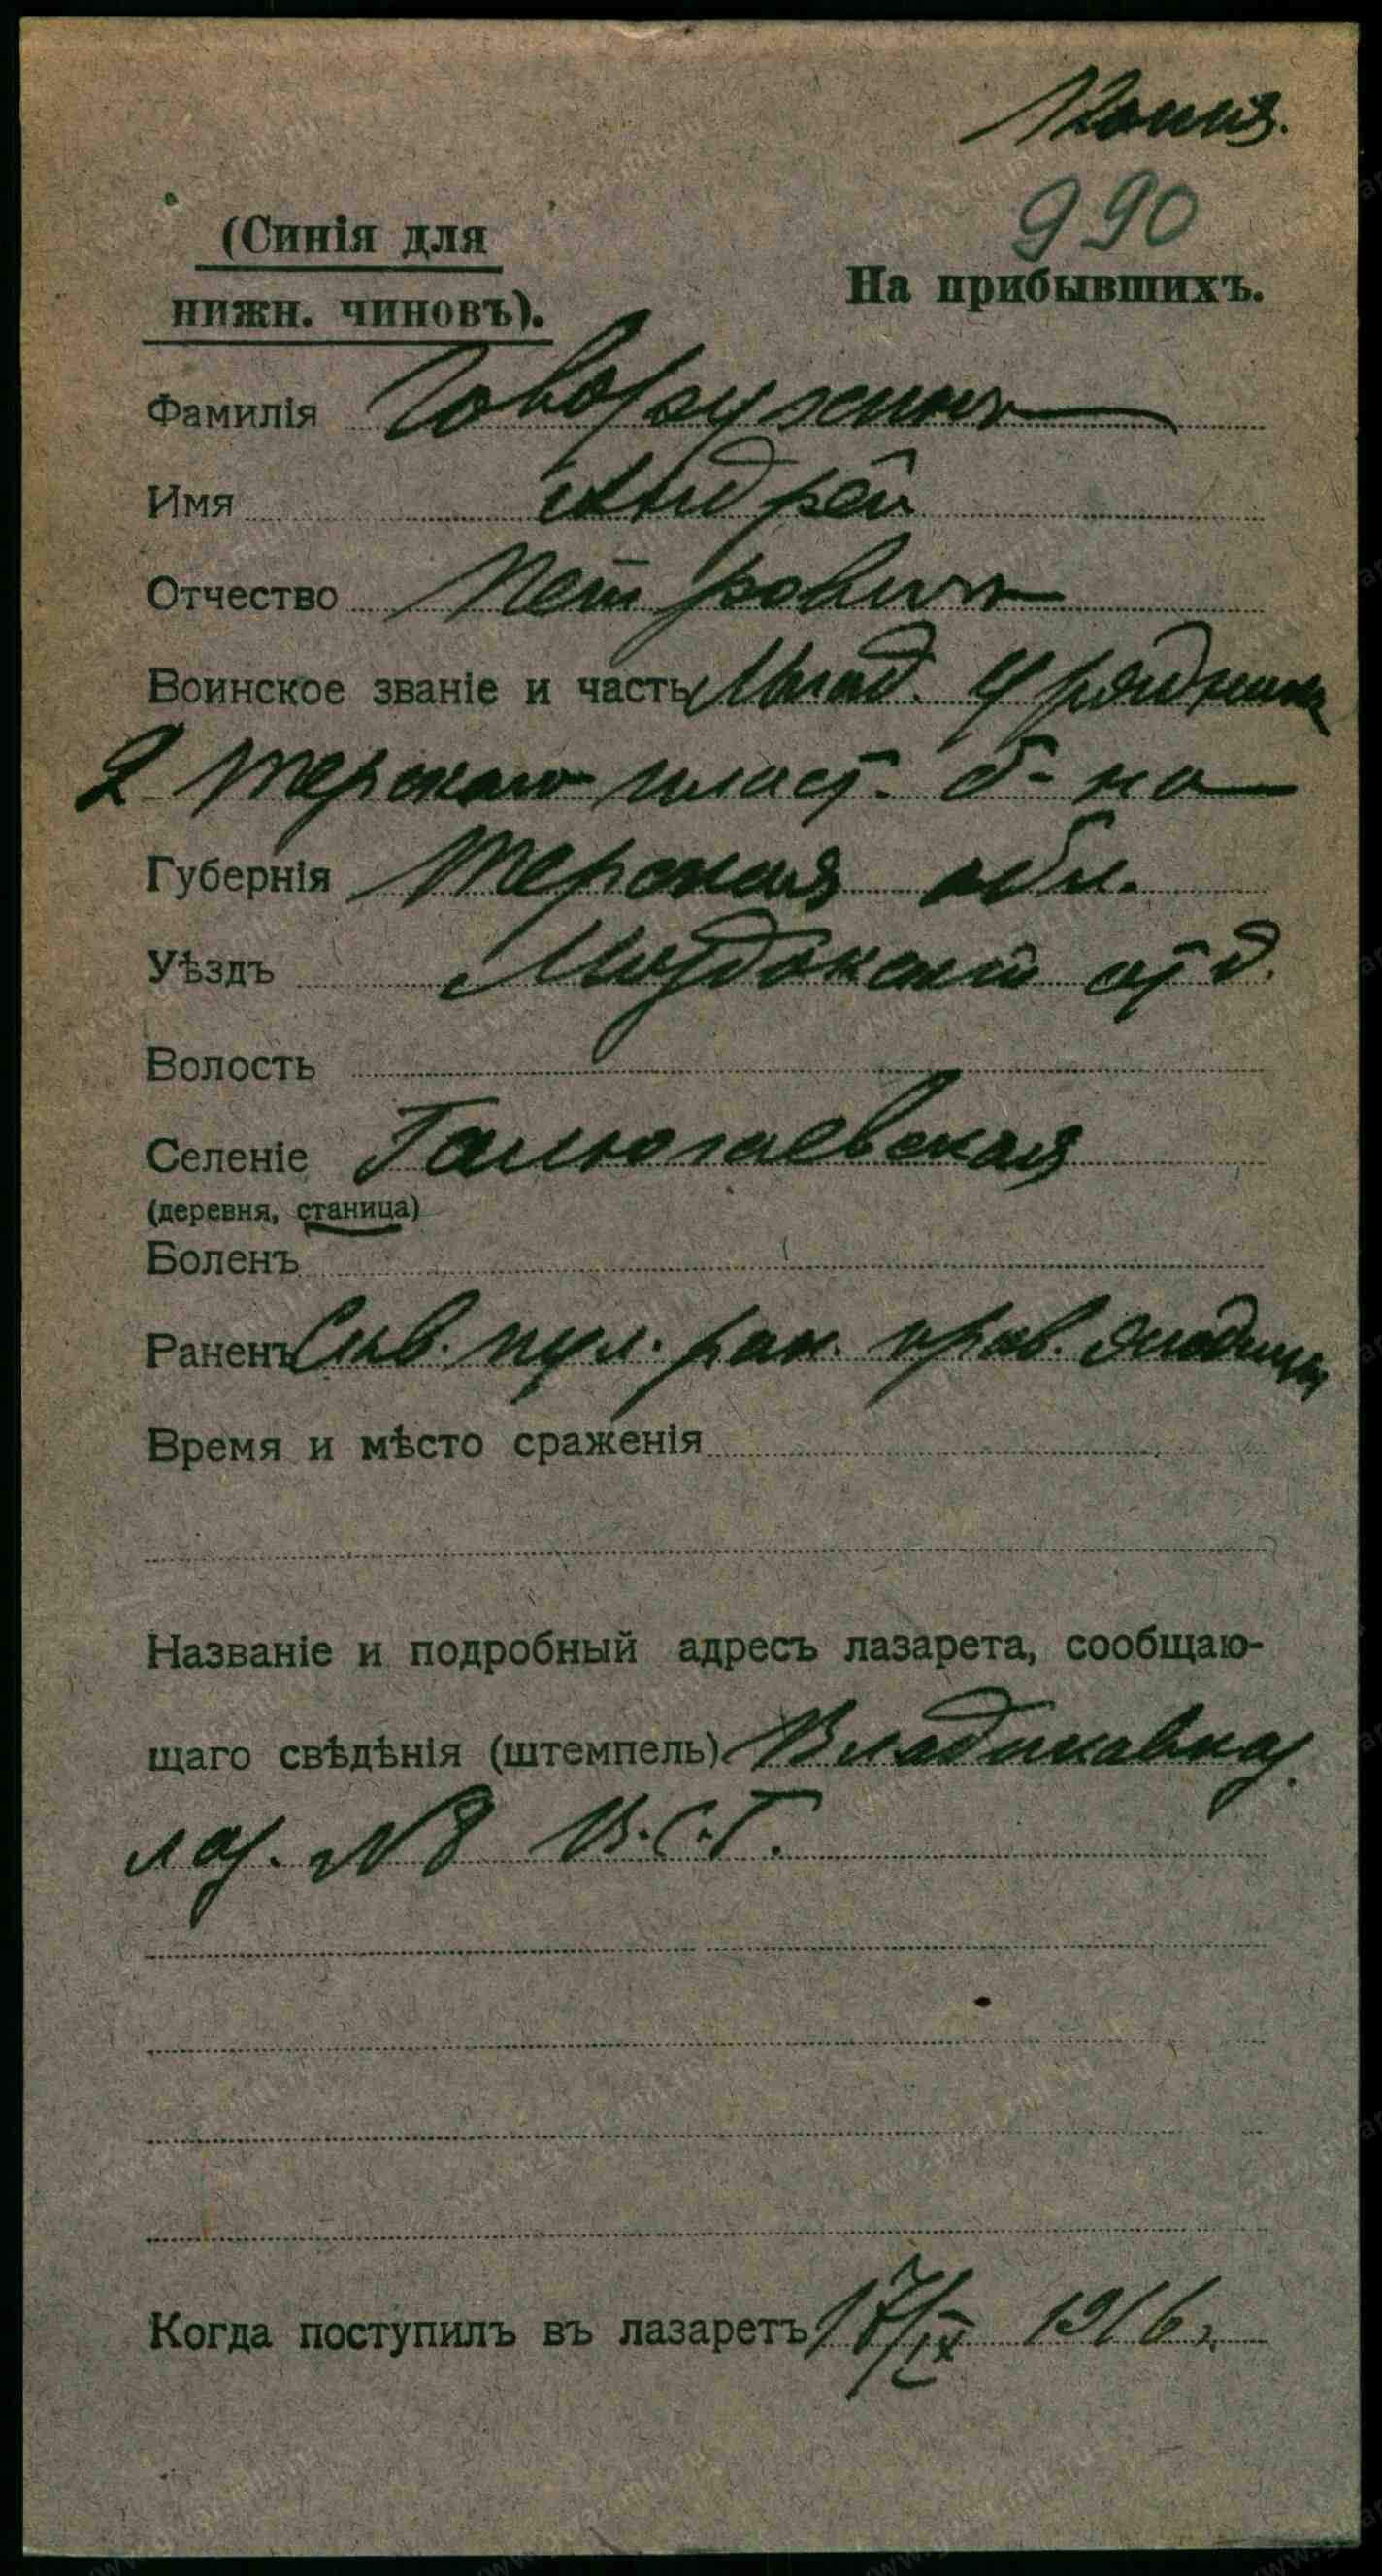 Копия.
990
(Синія для
нижн. чиновъ).
На прибывшихъ.
Фамилія Говорухинъ
Имя Андрей
Отчество Петровичъ
Воинское званіе и часть Млад. Урядникъ
2 Терскаго пласт. б-на
Губернія Терская обл.
Уѣздъ Моздокскій отд.
Волость
Селеніе Галюгаевская
(деревня, станица)
Боленъ
Раненъ Скв. пул. ран. прав. ягодицы
Время и мѣсто сраженія
Названіе и подробный адресъ лазарета, сообщаю-
щаго свѣдѣнія (штемпель) Владикавказ.
лаз. № 8 В.С.Г.
Когда поступилъ въ лазаретъ 17/IX 1916 г.